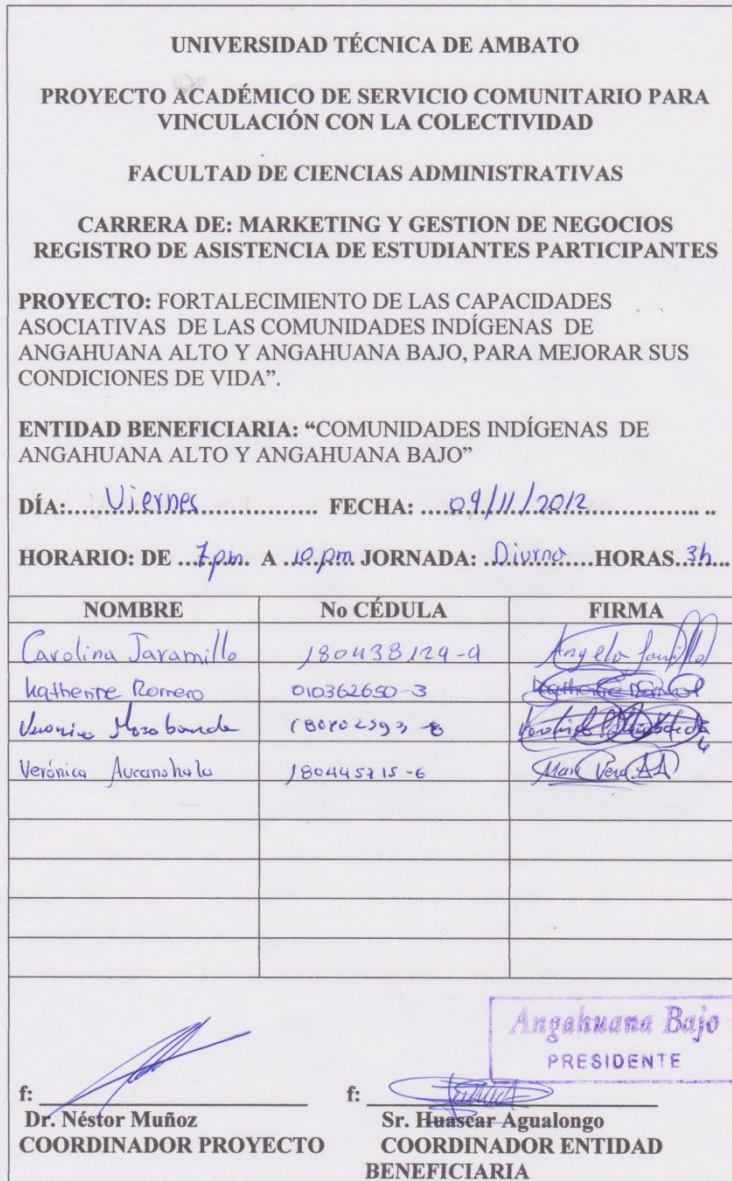 UNIVERSIDAD TÉCNICA DE AMBATO
PROYECTO ACADÉMICO DE SERVICIO COMUNITARIO PARA
VINCULACIÓN CON LA COLECTIVIDAD
FACULTAD DE CIENCIAS ADMINISTRATIVAS
CARRERA DE: MARKETING Y GESTION DE NEGOCIOS
REGISTRO DE ASISTENCIA DE ESTUDIANTES PARTICIPANTES
PROYECTO: FORTALECIMIENTO DE LAS CAPACIDADES
ASOCIATIVAS DE LAS COMUNIDADES INDÍGENAS DE
ANGAHUANA ALTO Y ANGAHUANA BAJO, PARA MEJORAR SUS
CONDICIONES DE VIDA”.
ENTIDAD BENEFICIARIA: “COMUNIDADES INDÍGENAS DE
ANGAHUANA ALTO Y ANGAHUANA BAJO”
DÍA: Viernes FECHA: 09/11/2012
HORARIO: DE 7pm. A 10pm JORNADA: Diurno HORAS 3h
NOMBRE No CÉDULA FIRMA
Carolina Jaramillo 180438129-9
Katherine Romero 010362650-3
Verónica
Verónica 180445715-6
Angahuana Bajo
PRESIDENTE
f: f:
Dr. Néstor Muñoz Sr. Huascar Agualongo
COORDINADOR PROYECTO COORDINADOR ENTIDAD
BENEFICIARIA